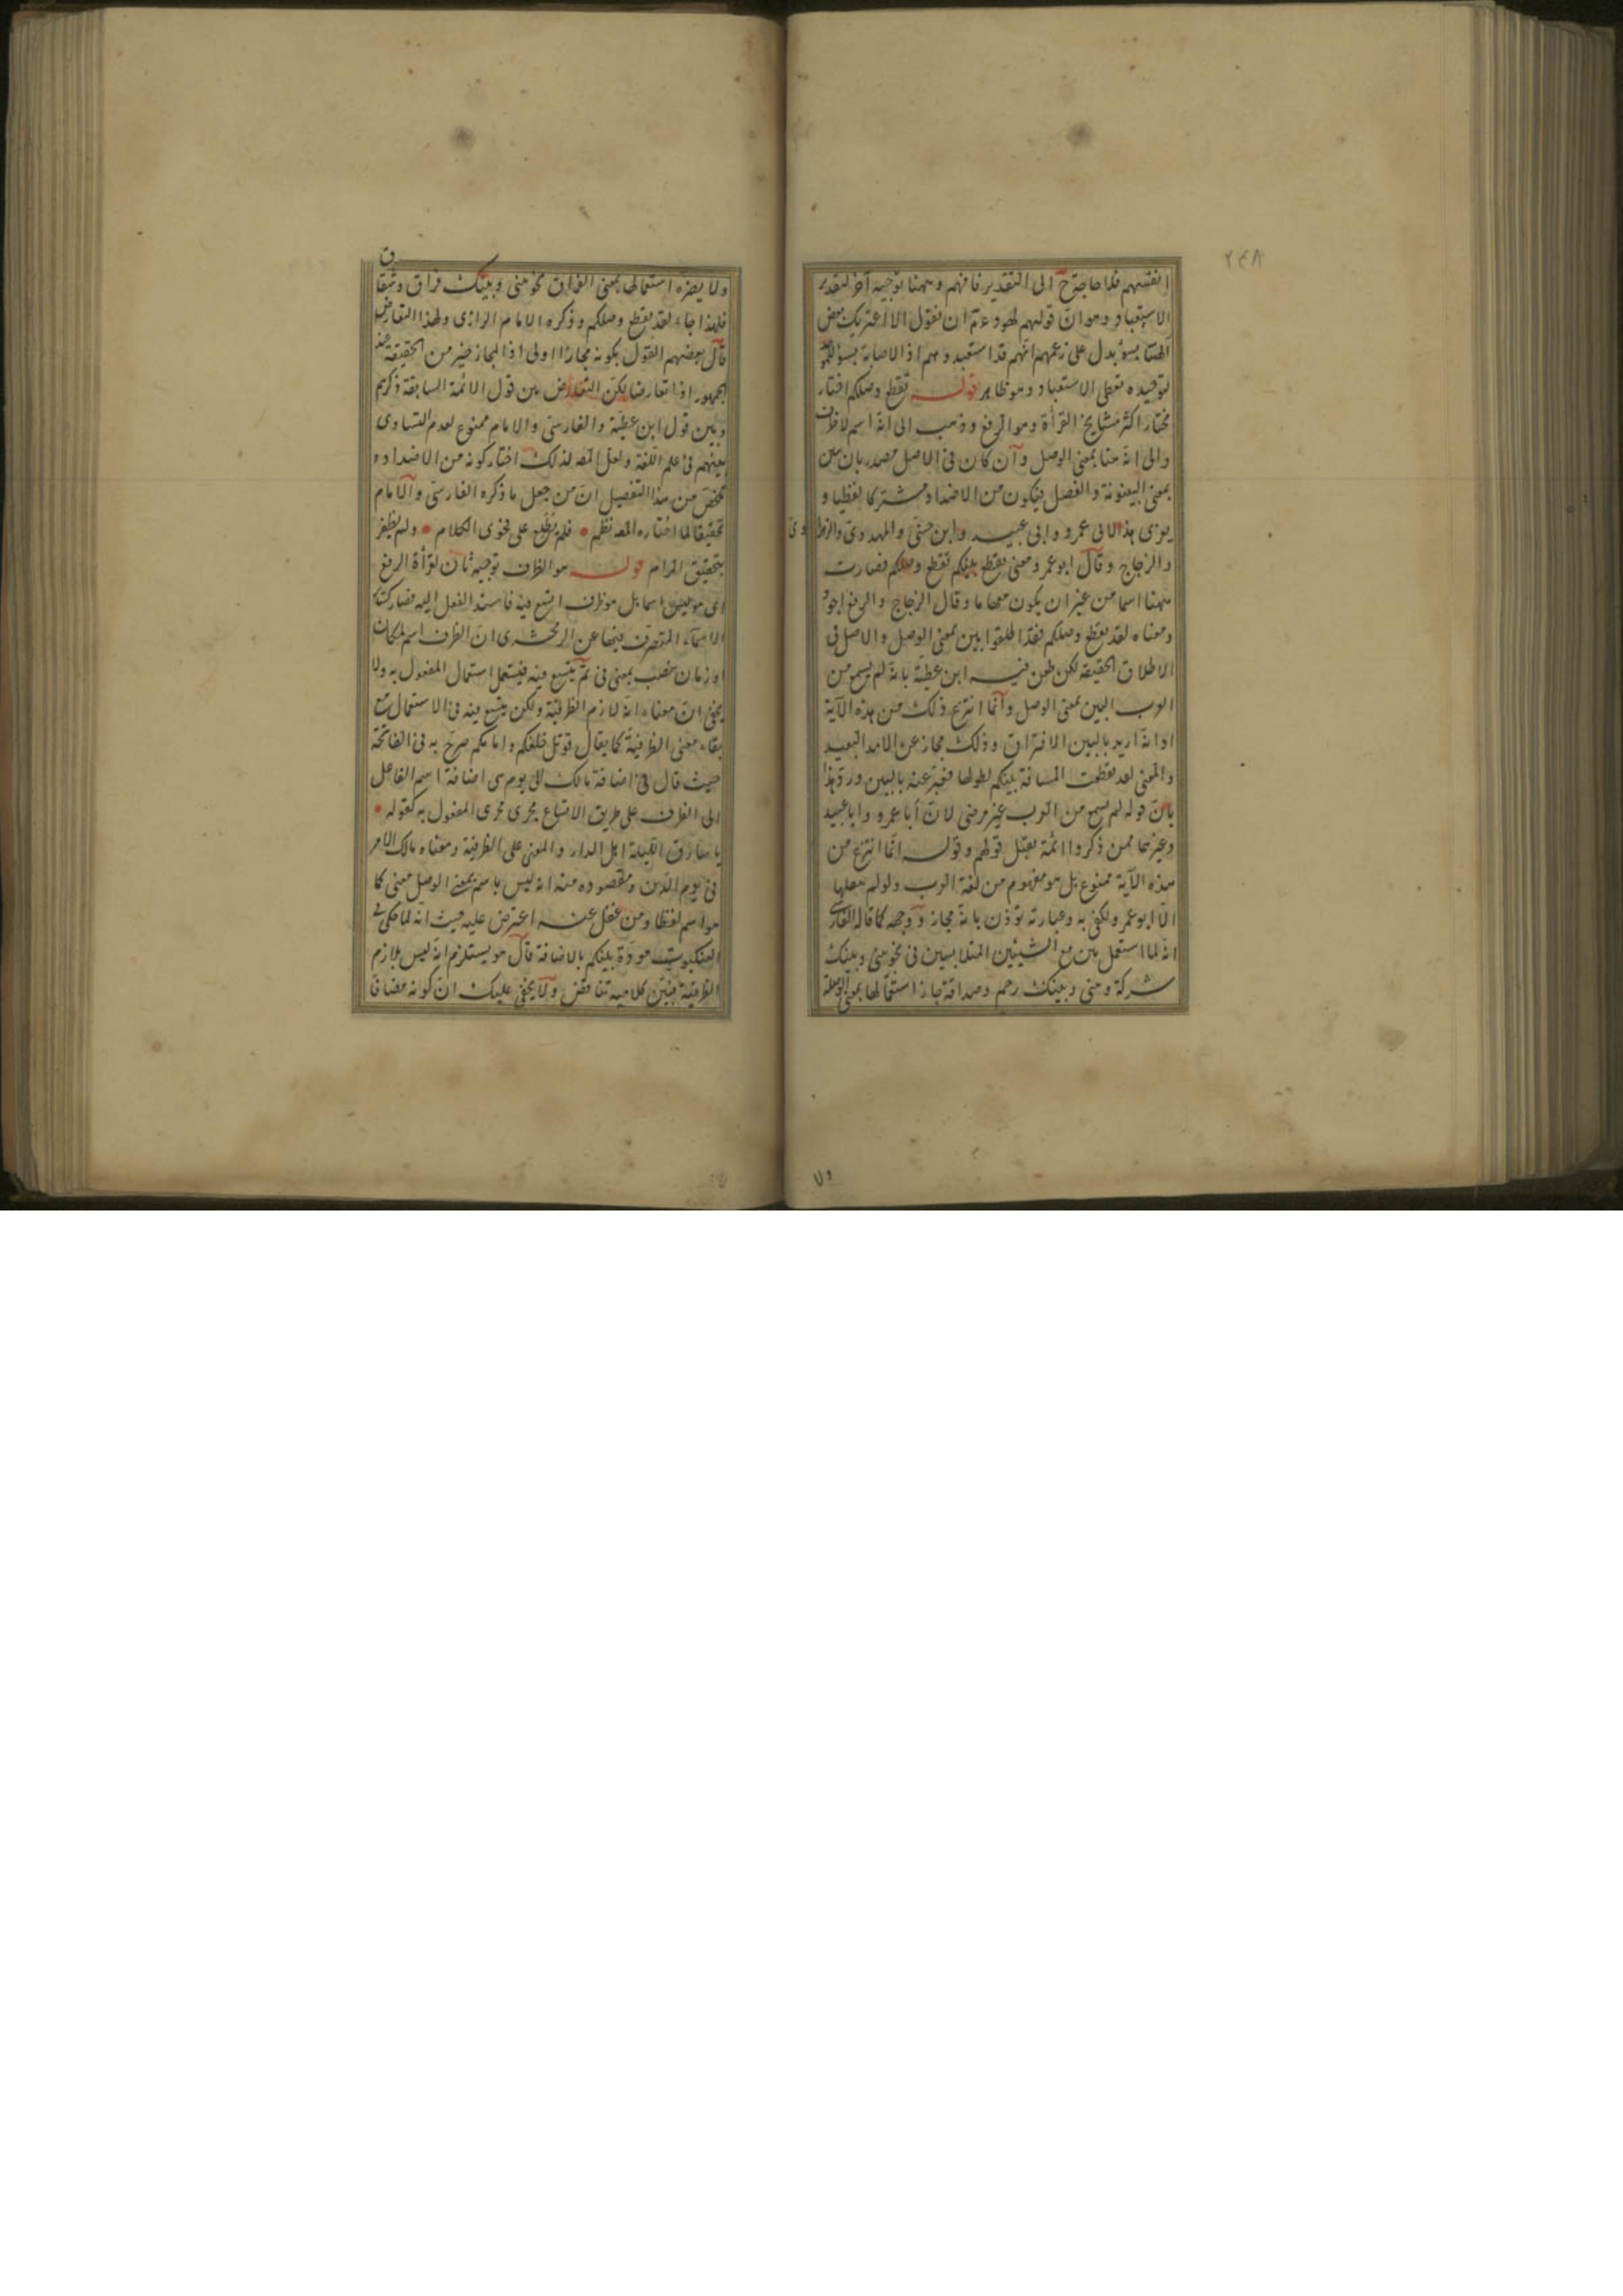 ٢٤٨
انفسهم فلا حاجة ح الى التقدير فافهم وههنا توجيه آخر لتقدير
الاستعباد وهو ان قولهم لهود عم ان نقول الا اعتريك بعض
الهتنا بسوء يدل على زعمهم انهم قد استعبدوهم اذ الاصابة بسوء
لتوحيده تعطى الاستعباد وهو ظاهر قوله تقطع وصلكم اختار
مختار اكثر مشايخ القرأة وهو الرفع وذهب الى انه اسم لا ظرف
والى انه هنا بمعنى الوصل وان كان فى الاصل مصدر بان يبين
بمعنى البينونة والفصل فيكون من الاضداد مشتركا لفظيا و
يعزى هذا لابى عمرو وابى عبيد وابن جنى والمهدوى والزهراوى
والزجاج وقال ابو عمرو معنى تقطع بينكم تقطع وصلكم فصارت
ههنا اسما من غير ان يكون معها ما وقال الزجاج والرفع اجود
ومعناه لقد تقطع وصلكم فقد اطلقوا بين بمعنى الوصل والاصل فى
الاطلاق الحقيقة لكن طعن فيه ابن عطية بانه لم يسمع من
العرب البين بمعنى الوصل وانما انتزع ذلك من هذه الآية
او انه اريد بالبين الافتراق وذلك مجاز عن الامد البعيد
والمعنى لقد تقطعت المسافة بينكم لطولها فعبر عنه بالبين ورد هذا
بان قوله لم يسمع من العرب غير مرضى لان أبا عمرو وابا عبيد
وغيرهما ممن ذكروا ائمة يقبل قولهم وقوله انما انتزع من
هذه الآية ممنوع بل هو مفهوم من لغة العرب ولو لم ينقلها
الا ابو عمرو لكفى به وعبارته تؤذن بانه مجاز ووجهه كما قاله الفارسى
انه لما استعمل بين مع الشيئين المتلابسين فى نحو بينى وبينك
شركة وبينى وبينك رحم وصداقة جاز استعمالها بمعنى الوصلة
ولا يضره استعمالها بمعنى الفراق نحو بينى وبينك فراق وشقاق
فلهذا جاء لقد تقطع وصلكم وذكره الامام الرازى ولهذا التعارض
قال بعضهم القول بكونه مجازا اولى اذ المجاز خير من الحقيقة عند
الجمهور اذا تعارضا لكن التعارض بين قول الائمة السابقة ذكرهم
وبين قول ابن عطية والفارسى والامام ممنوع لعدم التساوى
بينهم فى علم اللغة ولعل المصـ لذلك اختار كونه من الاضداد و
تلخص من هذا التفصيل ان من جعل ما ذكره الفارسى والامام
تحقيقا لما اختاره المصـ نظم فلم يطلع على فحوى الكلام ولم يظفر
بتحقيق المرام قوله هو الظرف توجيه ثان لقرأة الرفع
اى هو ليس اسما بل هو ظرف اتسع فيه فاسند الفعل اليه فصار كسائر
الاسماء المتصرف فيها عن الزمخشرى ان الظرف اسم لمكان
او زمان نصب بمعنى فى ثم يتسع فيه فيستعمل استعمال المفعول به ولا
يخفى ان معناه انه لازم الظرفية ولكن يتسع فيه فى الاستعمال مع
بقاء معنى الظرفية كما يقال قوتل خلفكم وامامكم صرح به فى الفاتحة
حيث قال فى اضافة مالك الى يوم هى اضافة اسم الفاعل
الى الظرف على طريق الاتساع يجرى مجرى المفعول به كقوله
يا سارق الليلة اهل الدار والمعنى على الظرفية ومعناه مالك الامر
فى يوم الدين ومقصوده منه انه ليس باسم بمعنى الوصل معنى كما
هو اسم لفظا ومن غفل عنه اعترض عليه حيث انه لما حكى فى
العنكبوت مودة بينكم بالاضافة قال هو يستلزم انه ليس بلازم
الظرفية فبين كلاميه تناقض ولا يخفى عليك ان كونه مضافا
ولا